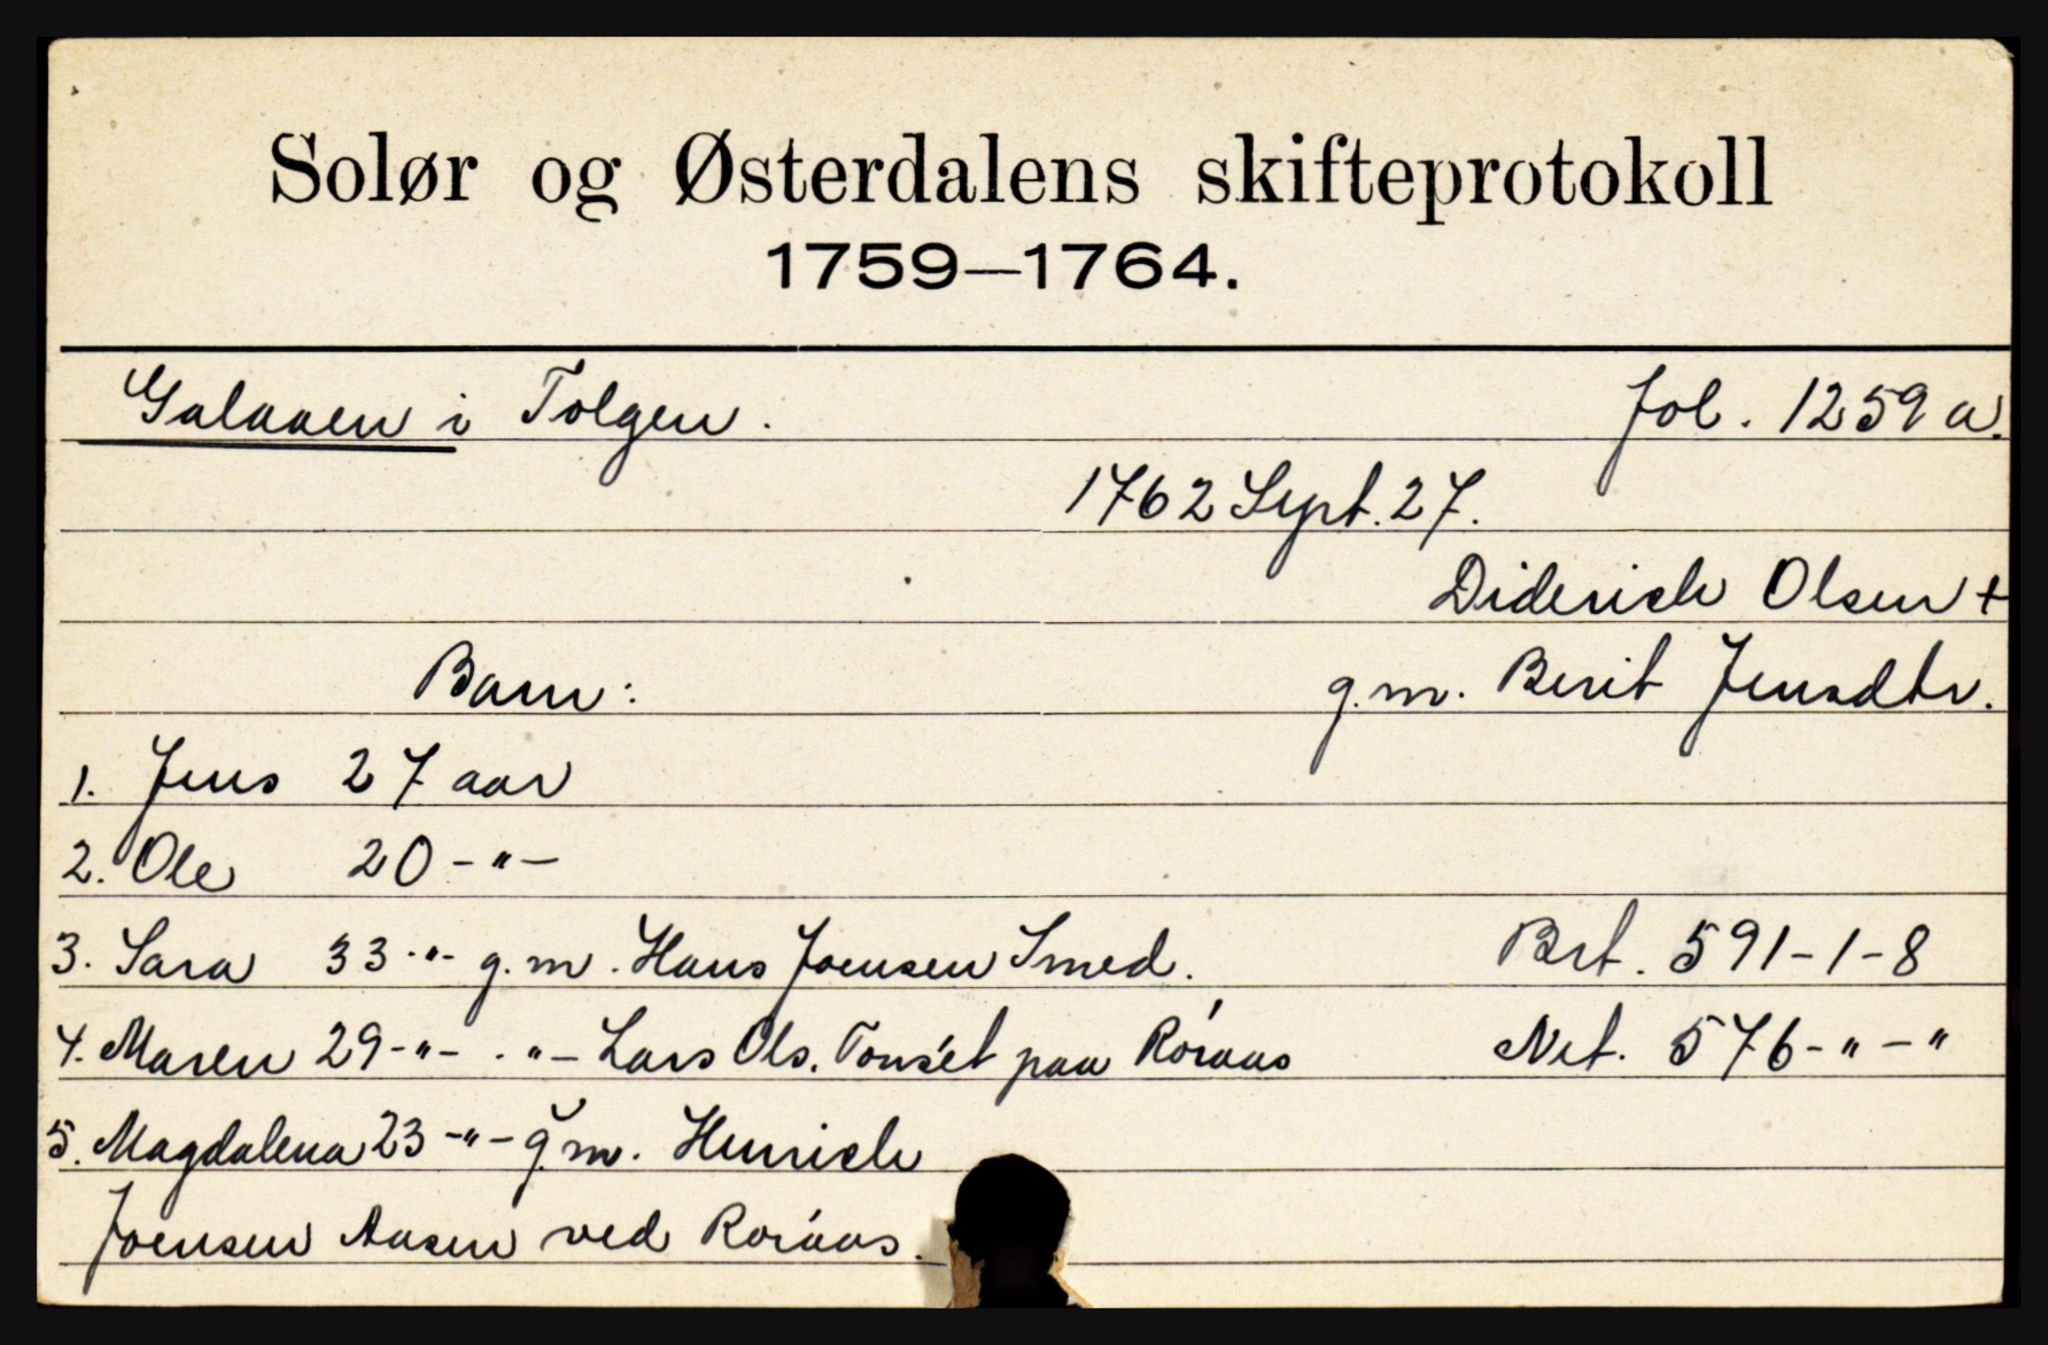 Solør og Østerdalens skifteprotokoll
1759—1764.
Galaaen i Tolgen. Fol. 1259 a.
1762 Sept. 27.
Diderich Olsen +
Barn: g.m. Berit Jensdtr.
1. Jens 27 aar
2. Ole 20 -"-
3. Sara 33 -"- g.m. Hans Joensen Smed. Brt. 591-1-8
4. Maren 29 -"- -"- Lars Ols. Tønset paa Röraas Net. 576-"-"
5. Magdalena 23 -"- g.m. Henrich
Joensen Aasen ved Röraas.